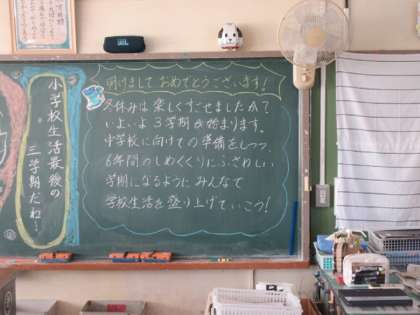 明けまして おめでとうございます!
冬休みは楽しくすごせましたか?
いよいよ3学期が始まります。
中学校に向けての準備をしつつ、
6年間のしめくくりにふさわしい
学期になるように みんなで
学校生活を盛り上げていこう!
小学校生活最後の
三学期だね…
JBL